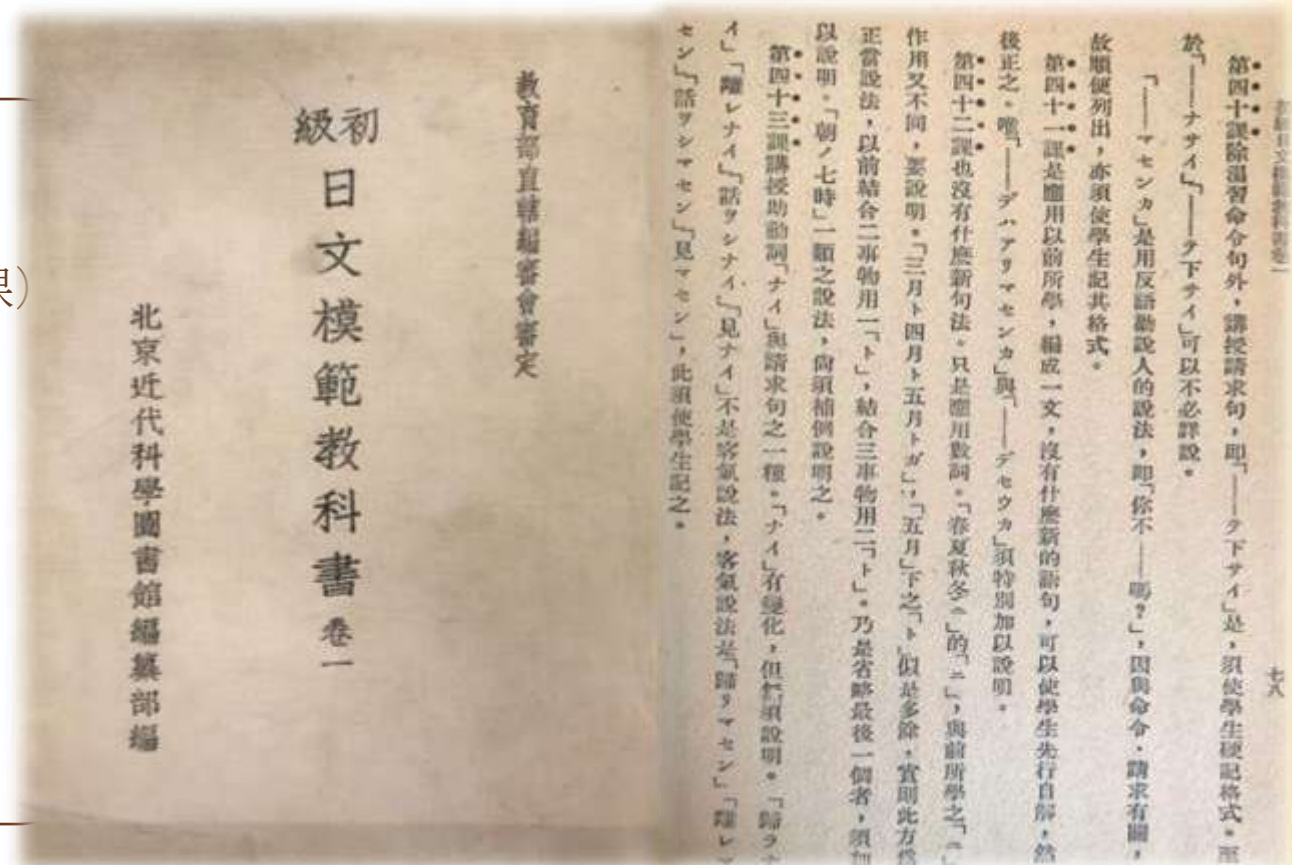 果)
教育部直轄編審會審定
初級
日文模範教科書卷一
北京近代科學圖書館編纂部編
七八
第四十課除溫習命令句外,講授請求句,即「——テ下サイ」是,須使學生硬記格式。至
於「——ナサイ」「——テ下サイ」可以不必詳說。
「——マセンカ」是用反語勸說人的說法,即「你不——嗎?」,因與命令.請求有關,
故順便列出,亦須使學生記其格式。
第四十一課是應用以前所學,編成一文,沒有什麼新的語句,可以使學生先行自解,然
後正之。唯「——デハアリマセンカ」與「——デセウカ」須特別加以說明。
第四十二課也沒有什麼新句法。只是應用數詞。「春夏秋冬ニ」的「ニ」,與前所學之「ニ」
作用又不同,要說明。「三月ト四月ト五月トガ」,「五月」下之「ト」似是多餘,實則此方爲
正當說法,以前結合二事物用一「ト」,結合三事物用二「ト」。乃是省略最後一個者,須加
以說明。「朝ノ七時」一類之說法,尚須補例說明之。
第四十三課講授助動詞「ナイ」與請求句之一種。「ナイ」有變化,但無須說明。「歸ラナ
イ」「躍レナイ」「話ヲシナイ」「見ナイ」不是客氣說法,客氣說法是「歸リマセン」「躍レマ
セン」「話ヲシマセン」「見マセン」,此須使學生記之。